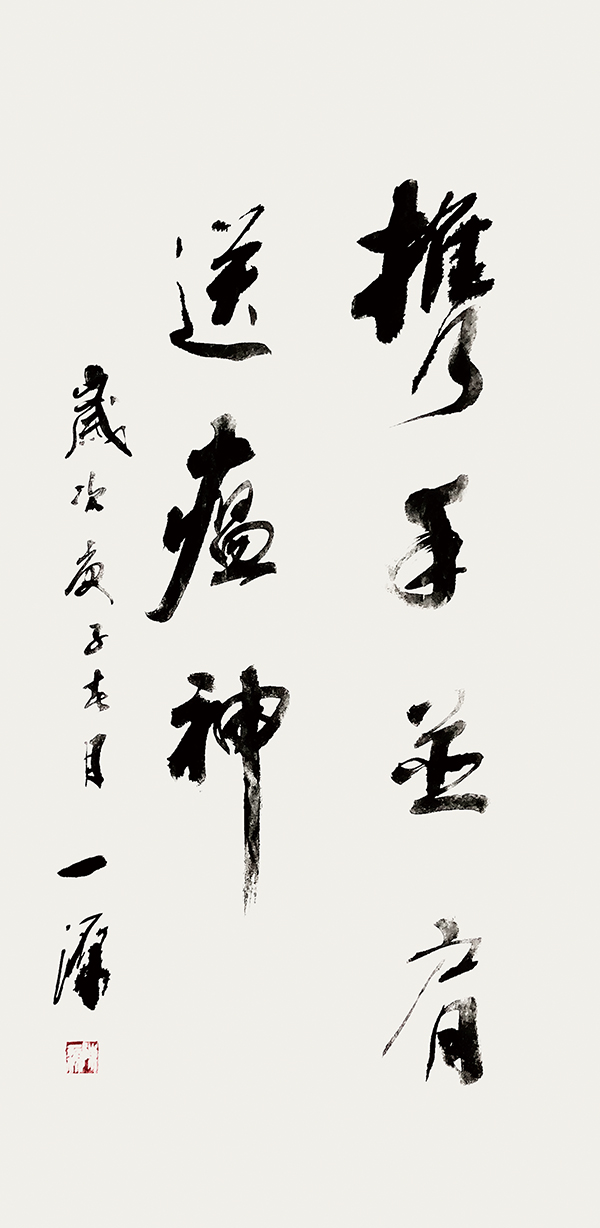 携手並肩
送瘟神
歲次庚子春月 一源